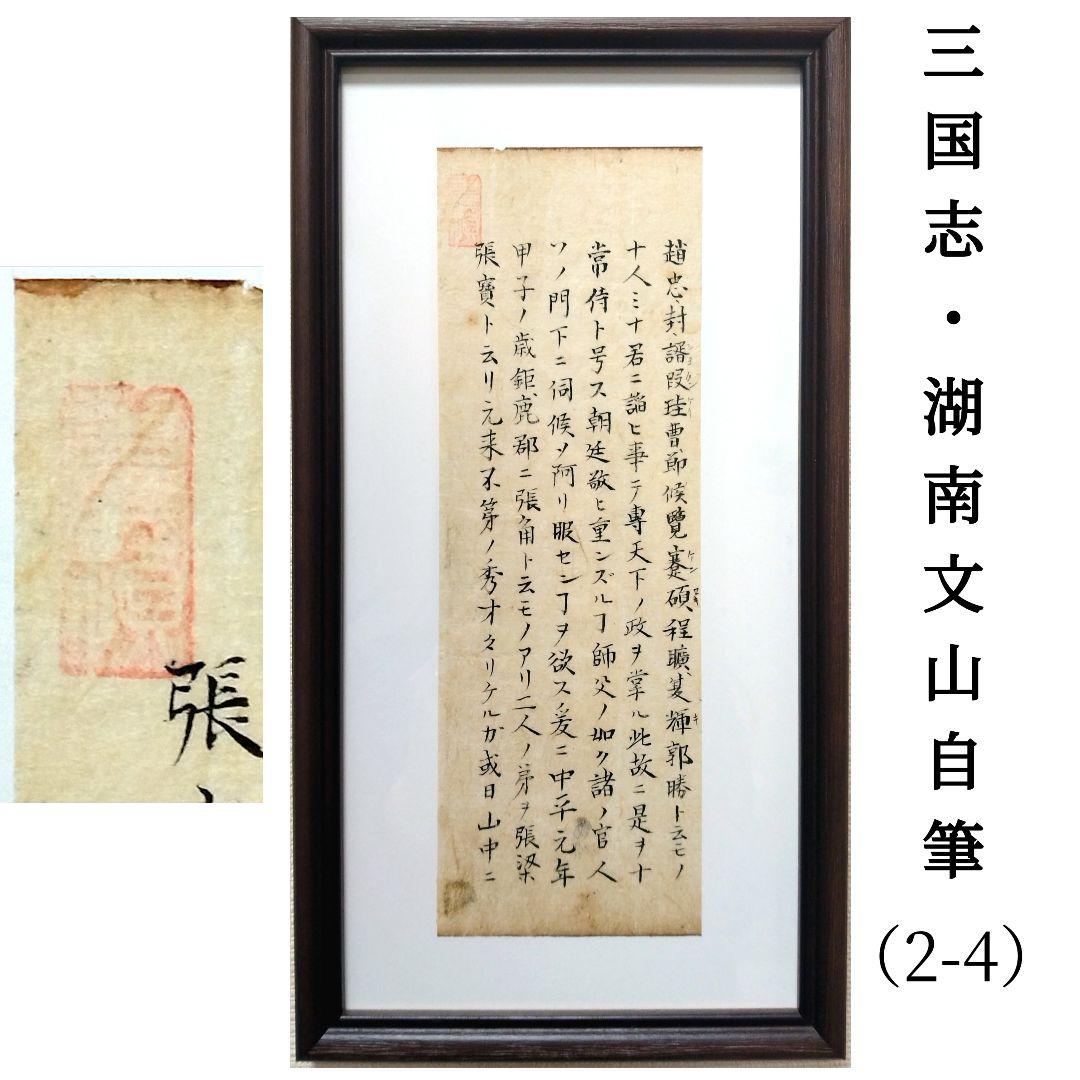 三国志・湖南文山自筆
（2-4）
趙忠封諝段珪曹節候覽蹇碩程曠夏輝郭勝ト云モノ
十人ミナ君ニ諂ヒ事テ專天下ノ政ヲ掌ル此故ニ是ヲ十
常侍ト号ス朝廷敬ヒ重ンズルヿ師父ノ如ク諸ノ官人
ソノ門下ニ伺候メ阿リ服センヿヲ欲ス爰ニ中平元年
甲子ノ歳鉅鹿郡ニ張角ト云モノアリ二人ノ弟ヲ張梁
張寶ト云リ元来不第ノ秀才タリケルガ或日山中ニ
張